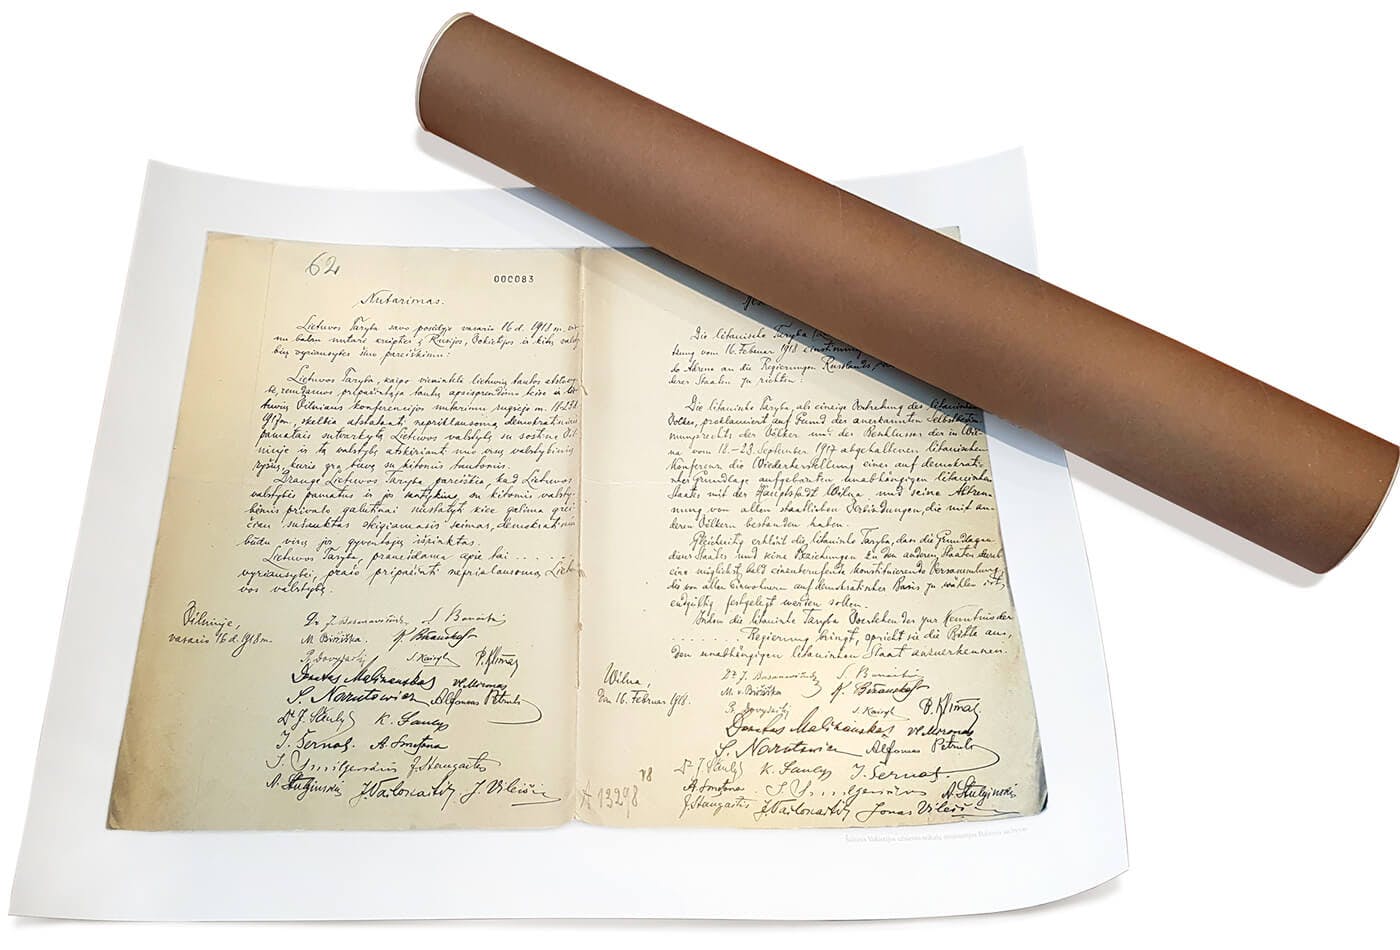 62
000083
Nutarimas.
Lietuvos Taryba savo posėdyje vasario 16 d. 1918 m. vie-
nu balsu nutarė kreiptis į Rusijos, Vokietijos ir kitų valsty-
bių vyriausybes šiuo pareiškimu:
Lietuvos Taryba, kaipo vienintelė lietuvių tautos atstovy-
bė, remdamos pripažintąja tautų apsisprendimo teise ir lie-
tuvių Vilniaus konferencijos nutarimu rugsėjo m. 18-23 d.
1917 m., skelbia atstatanti nepriklausomą demokratiniais
pamatais sutvarkytą Lietuvos valstybę su sostine Vil-
niuje ir tą valstybę atskirianti nuo visų valstybinių
ryšių, kurie yra buvę su kitomis tautomis.
Drauge Lietuvos Taryba pareiškia, kad Lietuvos
valstybės pamatus ir jos santykius su kitomis valsty-
bėmis privalo galutinai nustatyti kiek galima grei-
čiau sušauktas steigiamasis seimas, demokratiniu
būdu visų jos gyventojų išrinktas.
Lietuvos Taryba, pranešdama apie tai . . . . . .
vyriausybei, prašo pripažinti nepriklausomą Lietu-
vos valstybę.
Vilniuje,
vasario 16 d. 1918 m.
Dr. J. Basanavičius S. Banaitis
M. Biržiška. K. Bizauskas
Pr. Dovydaitis S. Kairys P. Klimas
Donatas Malinauskas Vl. Mironas
S. Narutowicz Alfonsas Petrulis
Dr J. Šaulys K. Šaulys
J. Šernas A. Smetona
J. Smilgevičius J. Staugaitis
A. Stulginskis J. Vailokaitis J. Vileišis
Die litauische Taryba
tung vom 16. Februar 1918 einstimmig
de Adresse an die Regierungen Russlands,
derer Staaten zu richten:
Die litauische Taryba, als einzige Vertretung des litauischen
Volkes, proklamiert auf Grund des anerkannten Selbstbestim-
mungsrechts der Völker und des Beschlusses der in Wil-
na vom 18.–23. September 1917 abgehaltenen litauischen
Konferenz die Wiederherstellung eines auf demokrati-
scher Grundlage aufgebauten unabhängigen litauischen
Staates mit der Hauptstadt Wilna und seine Abtren-
nung von allen staatlichen Verbindungen, die mit an-
deren Völkern bestanden haben.
Gleichzeitig erklärt die litauische Taryba, dass die Grundlagen
dieses Staates und seine Beziehungen zu den anderen Staaten durch
eine möglichst bald einzuberufende konstituierende Versammlung,
die von allen Einwohnern auf demokratischer Basis zu wählen ist,
endgültig festgelegt werden sollen.
Indem die litauische Taryba Vorstehendes zur Kenntnis der
. . . . . . . . Regierung bringt, spricht sie die Bitte aus,
den unabhängigen litauischen Staat anzuerkennen.
Wilna,
den 16. Februar 1918.
Dr J. Basanavičius S. Banaitis
M. v. Biržiška K. Bizauskas
Pr. Dovydaitis S. Kairys P. Klimas
Donatas Malinauskas Vl. Mironas
S. Narutowicz Alfonsas Petrulis
Dr J. Šaulys K. Šaulys J. Šernas
A. Smetona J. Smilgevičius A. Stulginskis
J. Staugaitis J. Vailokaitis Jonas Vileišis
A 13298
18